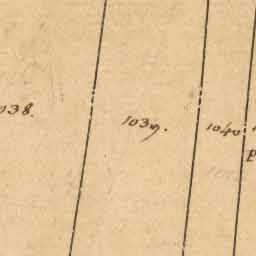 038.
1039.
1040
P